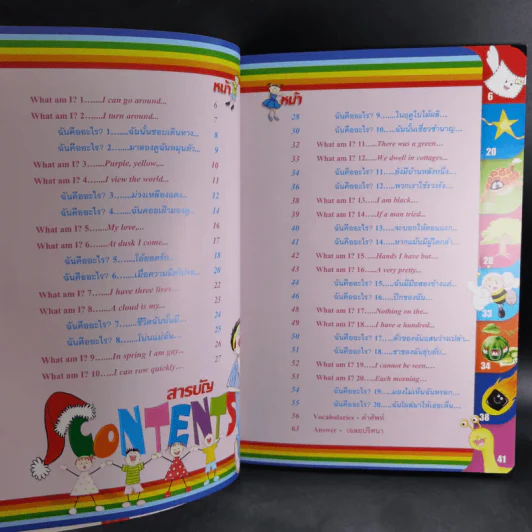 หน้า
What am I? 1......I can go around... 6
What am I? 2......I turn around... 7
ฉันคืออะไร? 1......ฉันนั้นชอบเดินทาง... 8
ฉันคืออะไร? 2......มาลองดูฉันหมุนตัว... 9
What am I? 3......Purple, yellow,... 10
What am I? 4......I view the world... 11
ฉันคืออะไร? 3......ม่วงเหลืองแดง... 12
ฉันคืออะไร? 4......ฉันคอยเฝ้ามองดู... 14
What am I? 5......My love,... 16
What am I? 6......At dusk I come,...
ฉันคืออะไร? 5......โอ้ยอดรัก...
ฉันคืออะไร? 6......เมื่อความมืด
What am I? 7......I have three lines... 22
What am I? 8......A cloud is my...
ฉันคืออะไร? 7......ชีวิตฉันนั้นมี... 24
ฉันคืออะไร? 8......ไปนแม่ฉัน... 25
What am I? 9......In spring I am gay... 26
What am I? 10......I can run quickly... 27
สารบัญ
CONTENTS
หน้า
28 ฉันคืออะไร? 9......ในฤดูใบไม้ผลิ...
30 ฉันคืออะไร? 10......ฉันนั้นเชี่ยวชำนาญ...
32 What am I? 11......There was a green...
33 What am I? 12......We dwell in cottages...
34 ฉันคืออะไร? 11......ยังมีบ้านหลังหนึ่ง...
36 ฉันคืออะไร? 12......พวกเรา
38 What am I? 13......I am black...
39 What am I? 14......If a man tried...
40 ฉันคืออะไร? 13......
41 ฉันคืออะไร? 14......หากแม้นมีผู้ใด
42 What am I? 15......Hands I have but...
43 What am I? 16......A very pretty...
44 ฉันคืออะไร? 15......ฉันมีมือสองข้าง
46 ฉันคืออะไร? 16......ปีกของฉัน...
48 What am I? 17......Nothing on the...
49 What am I? 18......I have a hundred...
50 ฉันคืออะไร? 17......ตัวของฉันแสนว่างเปล่า...
51 ฉันคืออะไร? 18......ขาของฉัน
52 What am I? 19......I cannot be seen...
53 What am I? 20......Each morning...
54 ฉันคืออะไร? 19......มองไม่เห็นฉันหรอก...
55 ฉันคืออะไร? 20......
56 Vocabularies - คำศัพท์
63 Answer - เฉลยปริศนา
6
20
28
33
34
36
41